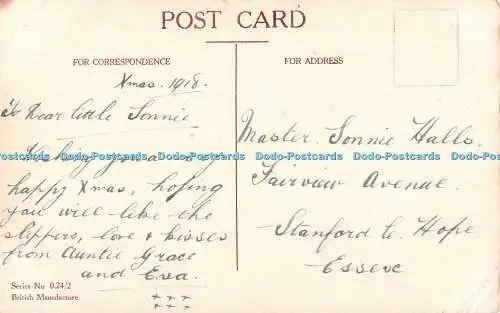 POST CARD
FOR CORRESPONDENCE
FOR ADDRESS
Xmas. 1918.
To Dear little Sonnie
Wishing you a very
happy Xmas, hoping
you will like the
slippers, love & kisses
from Auntie Grace
and Eva.
+++
+++
Master. Sonnie Halls.
Fairview Avenue.
Stanford le Hope
Essex
Dodo-Postcards Dodo-Postcards Dodo-Postcards Dodo-Postcards Dodo-Postcards
Series No 0.24/2
British Manufacture